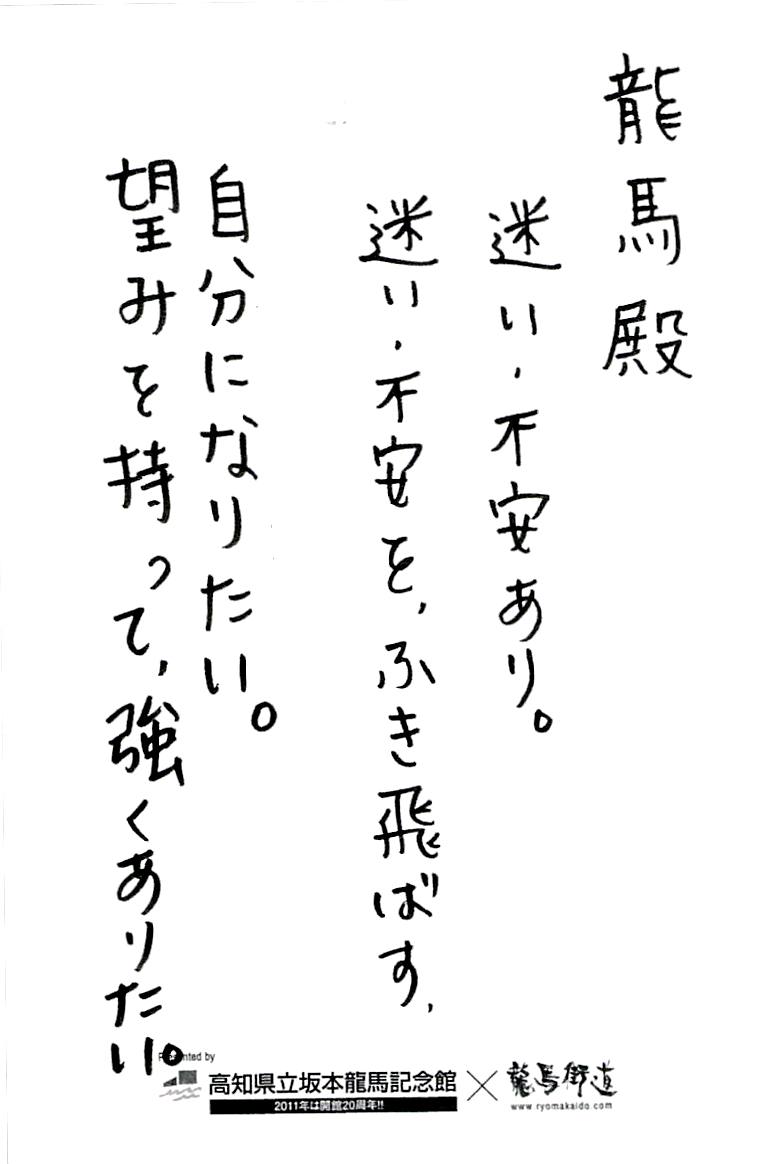 龍馬殿
迷い、不安あり。
迷い、不安を、ふき飛ばす、
自分になりたい。
望みを持って、強くありたい。
Presented by
高知県立坂本龍馬記念館×龍馬街道
2011年は開館20周年!!
www.ryomakaido.com